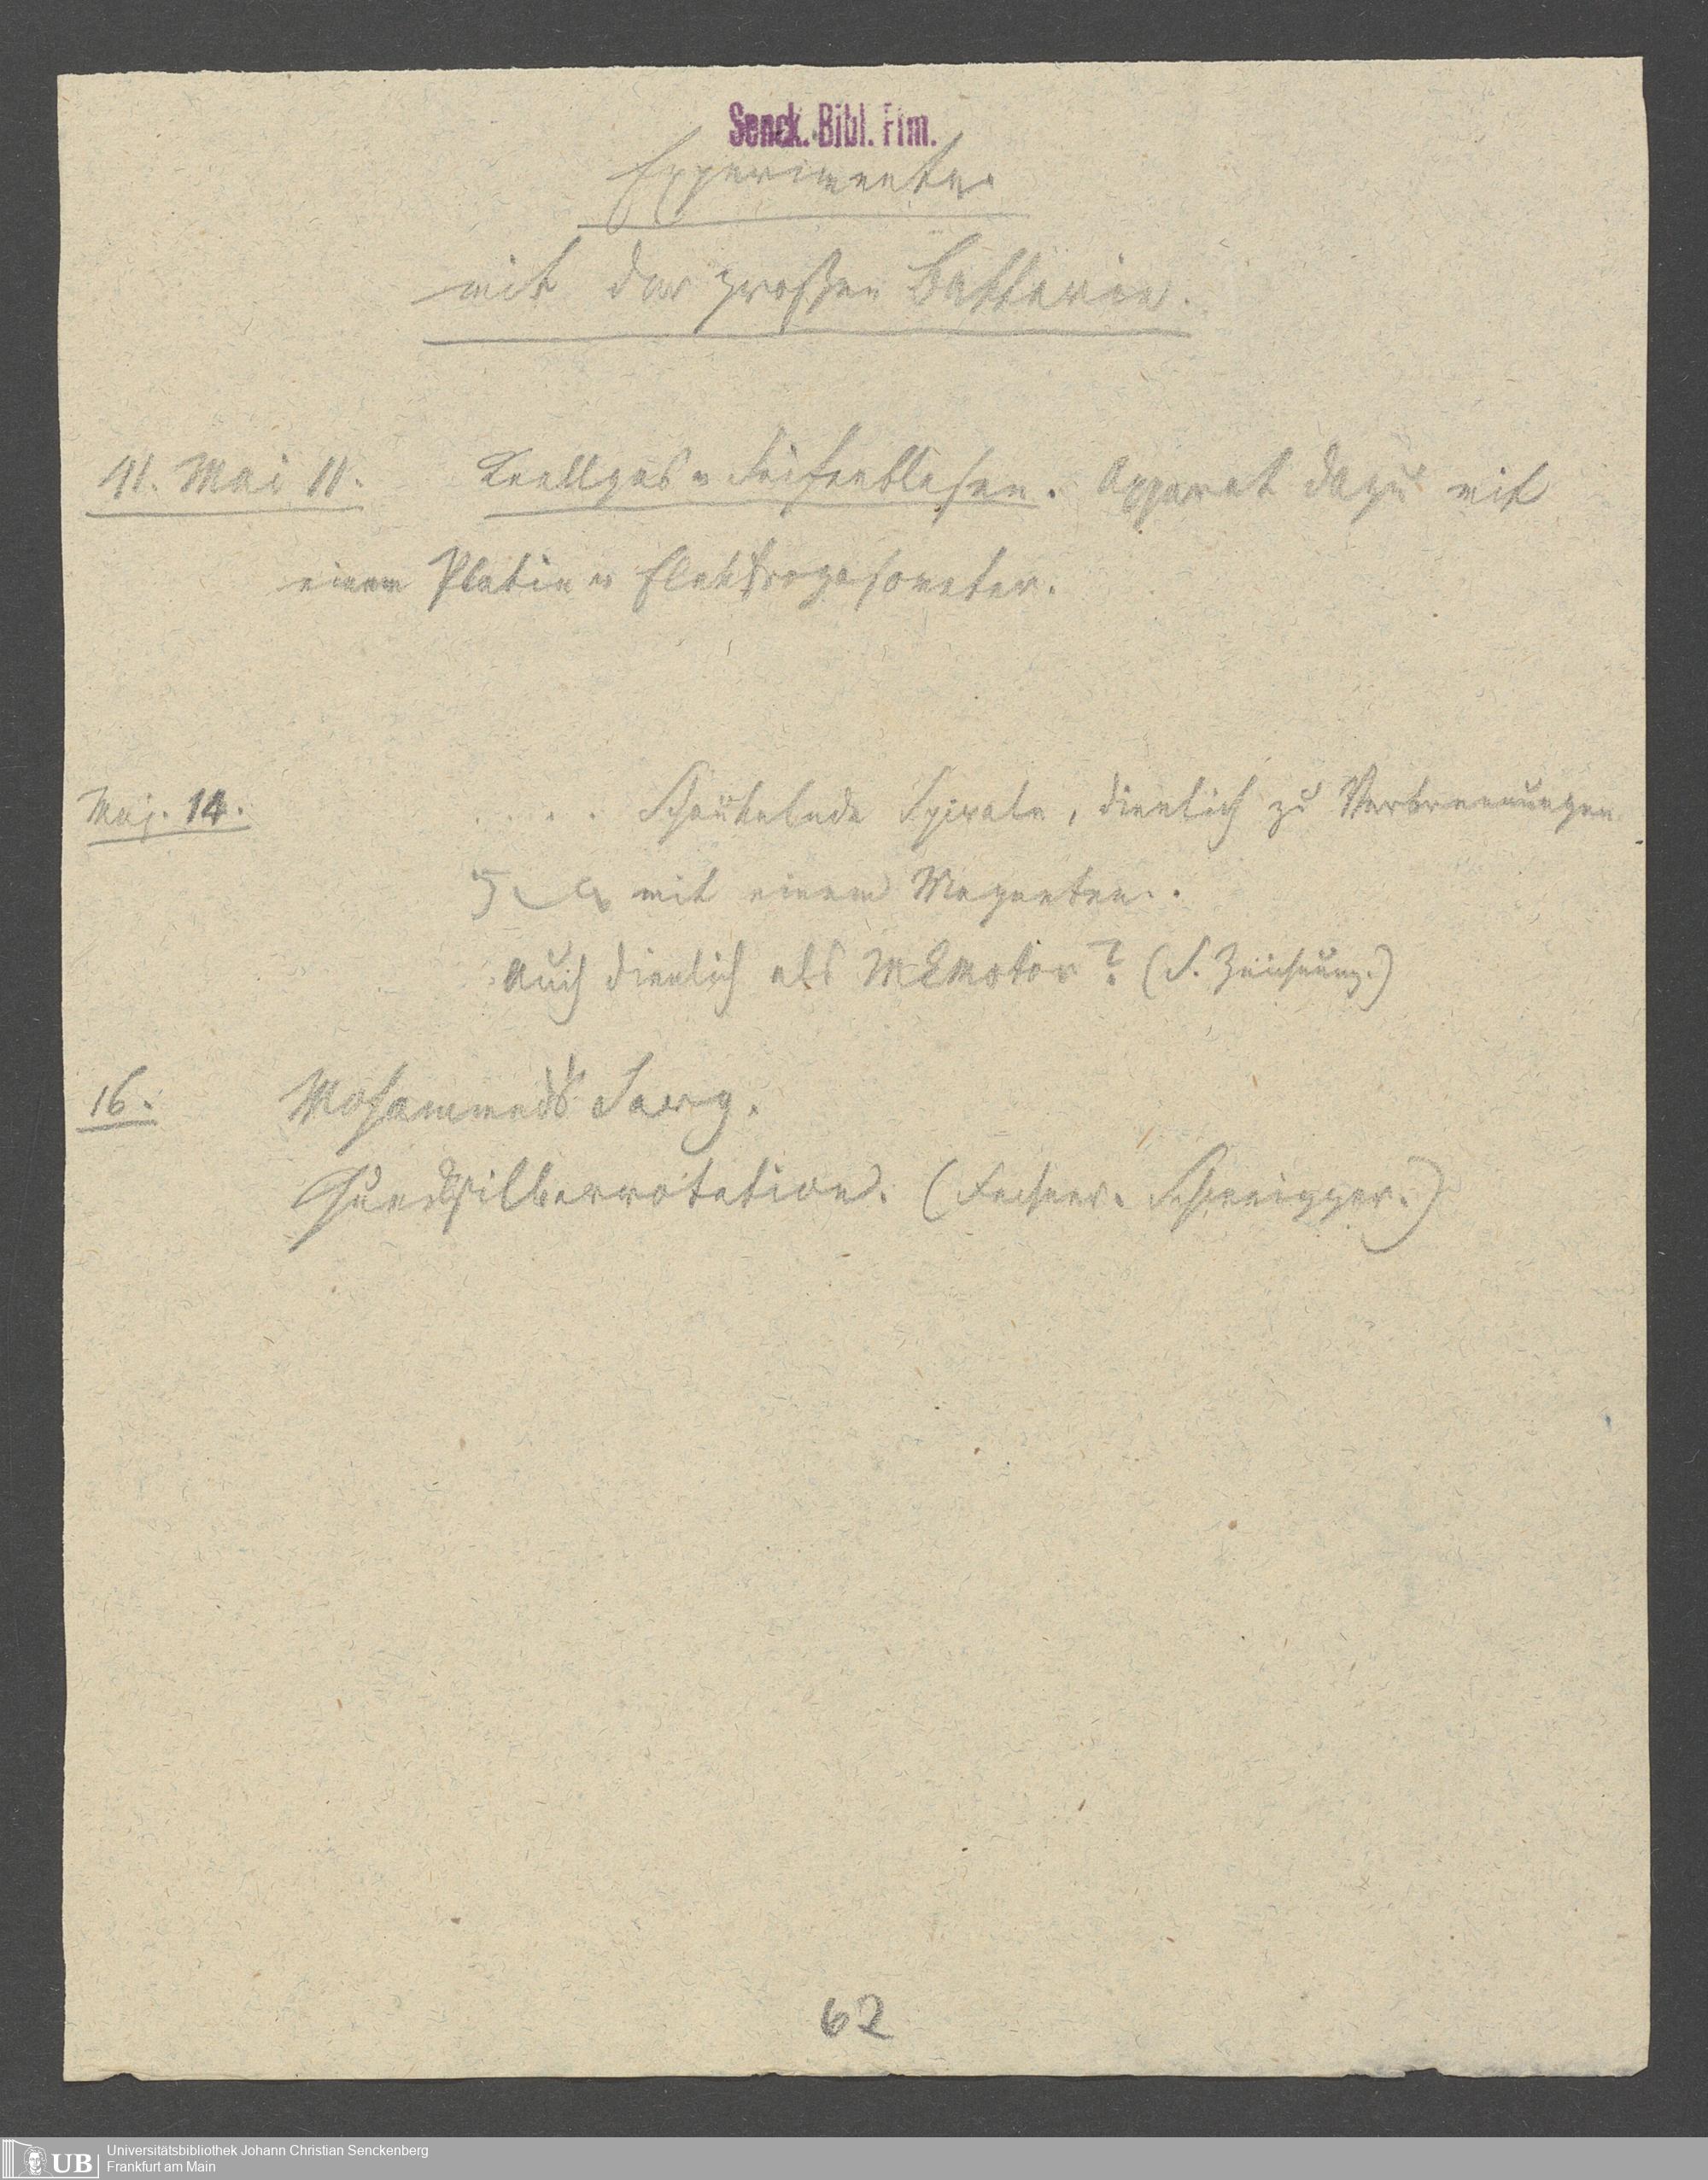 Senck. Bibl. Ffm.
Experimente
mit der großen Batterie.
11. Mai 11. Knallgas-Seifenblasen. Apparat dazu mit
einem Platin-Elektrogasometer.
Maj. 14. . . . . Schaukelnde Spirale, dienlich zu Verbrennungen
mit einem Magneten.
Auch dienlich als Motor? (S. Zeichnung.)
16. Mohammeds Sarg.
Quecksilberrotation. (Fechner. Schweigger.)
62
UB Universitätsbibliothek Johann Christian Senckenberg
Frankfurt am Main